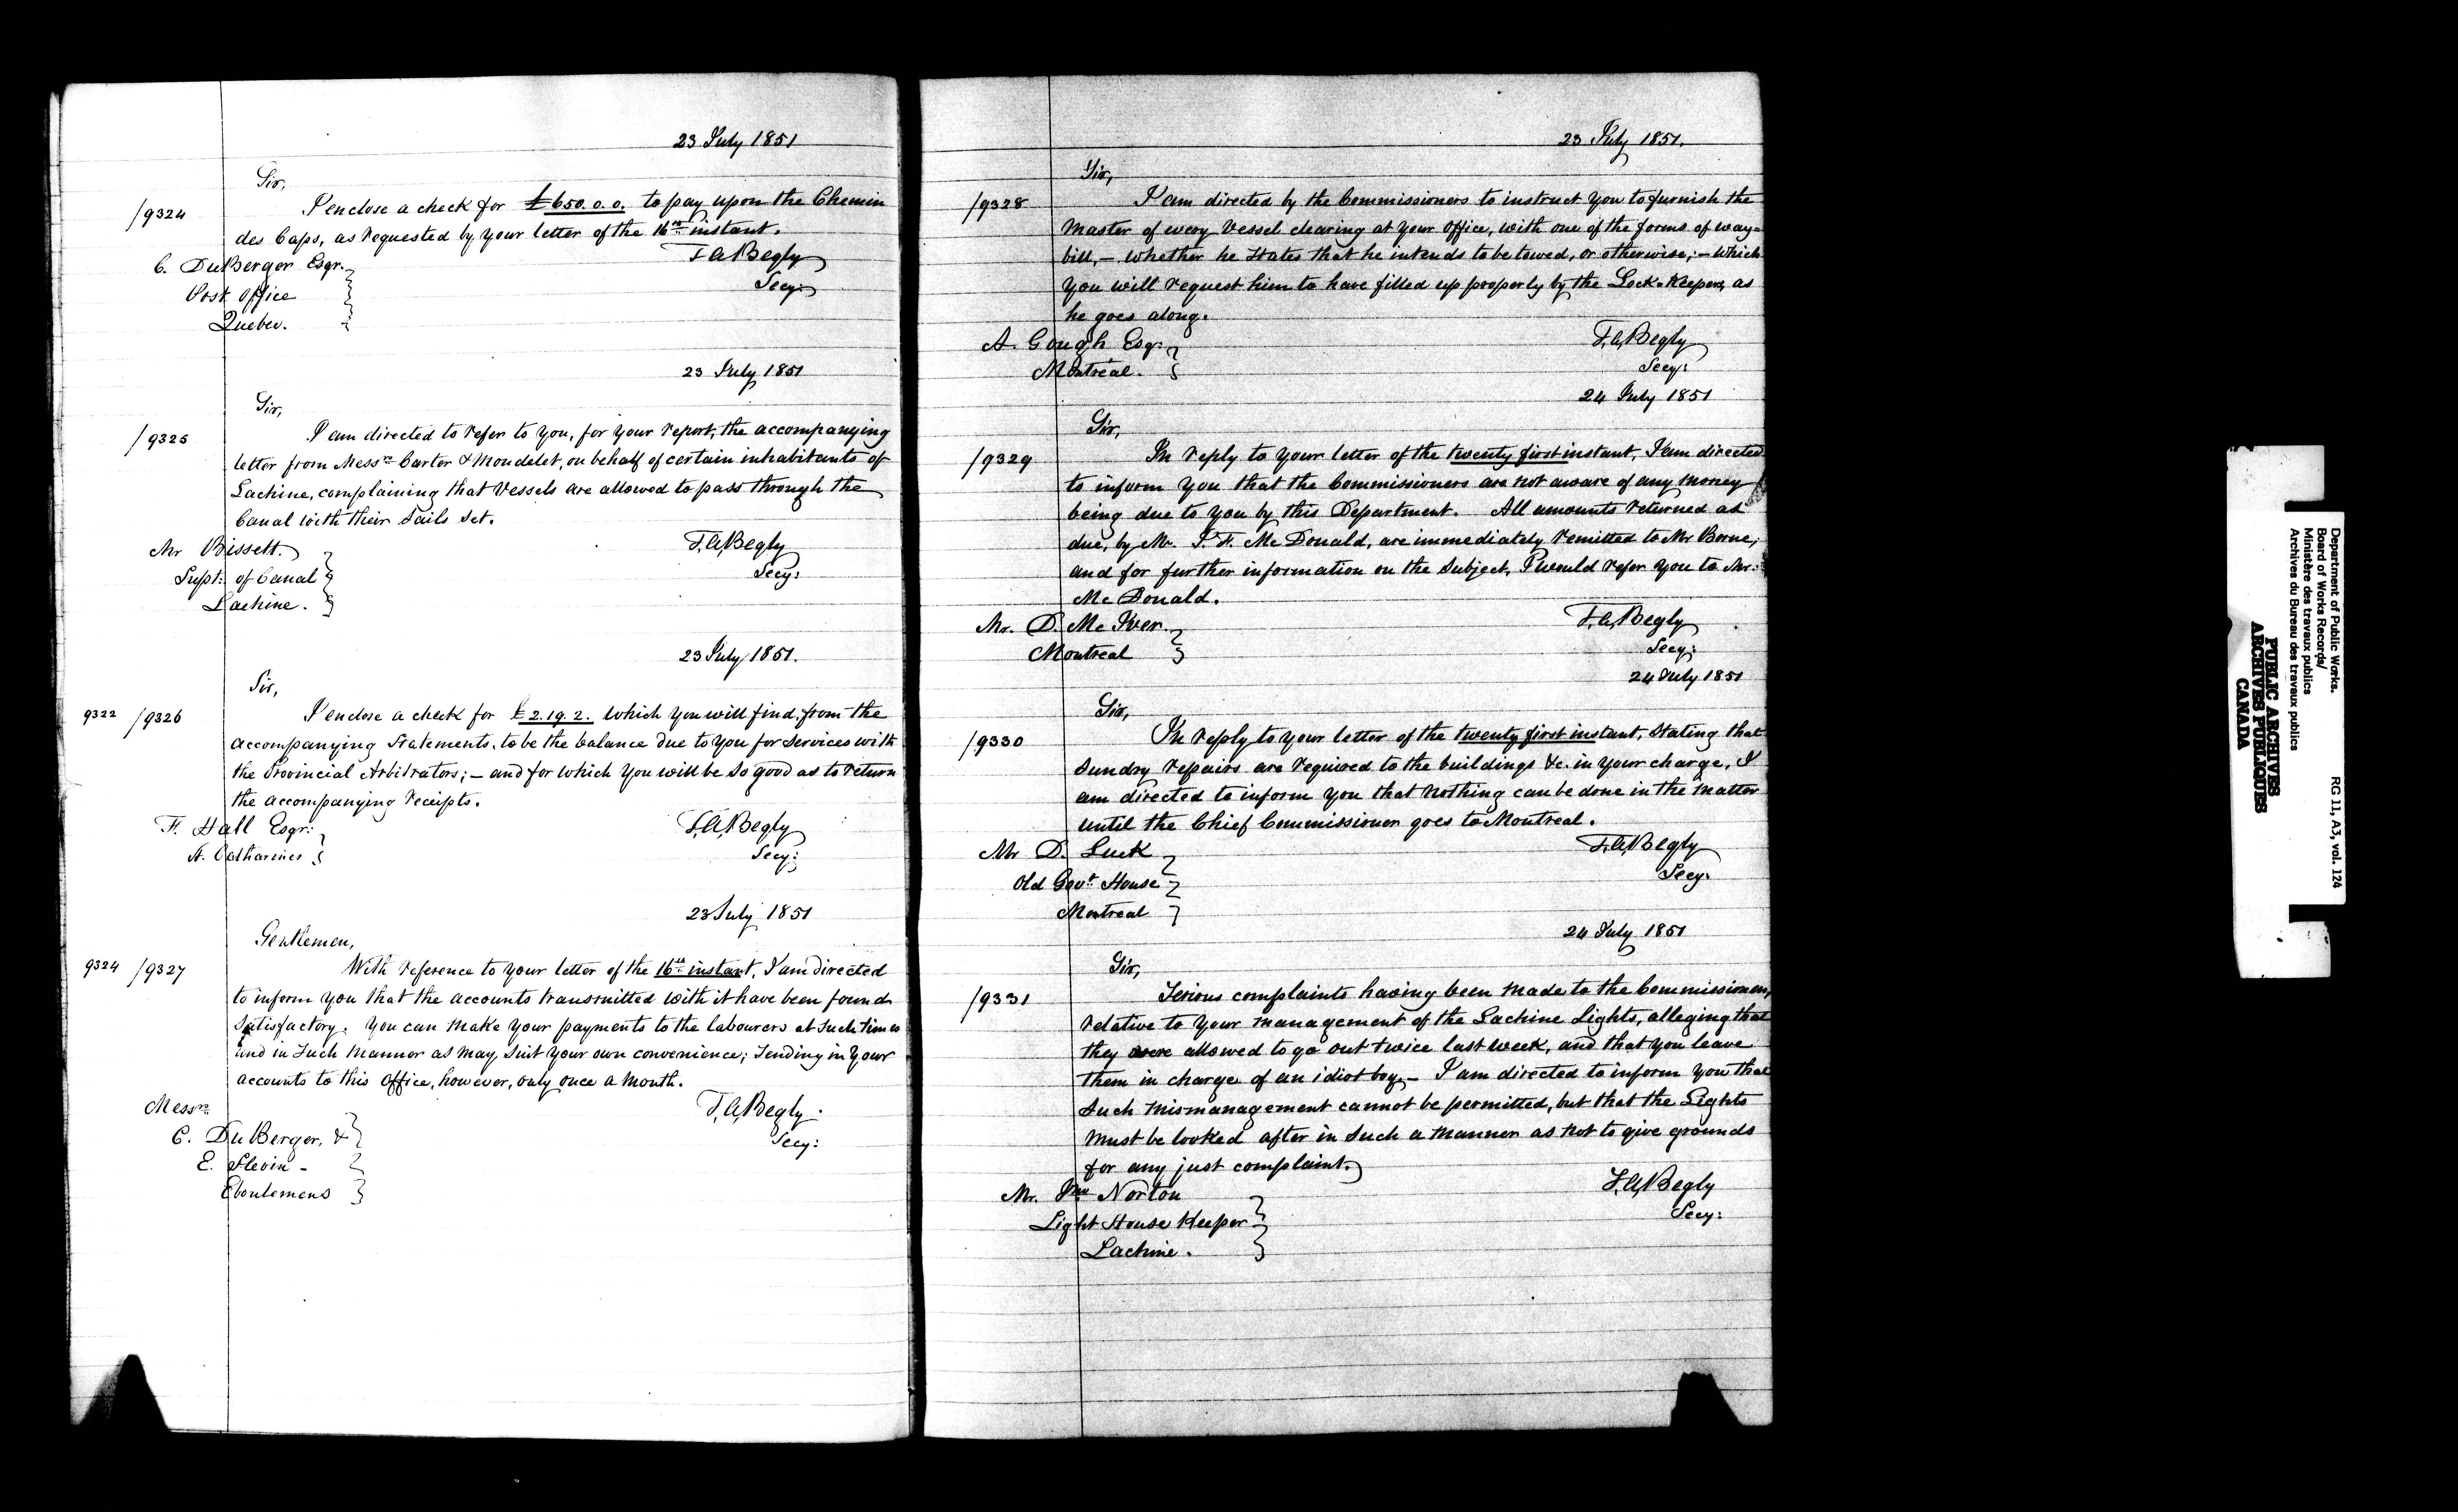 23 July 1851
Sir,
/9324
I enclose a check for £650.0.0. to pay upon the Chemin
des Caps, as requested by your letter of the 16th instant.
T.A. Begly
Secy:
C. DuBerger Esqr.
Post Office
Quebec.
23 July 1851
Sir,
/9325
I am directed to refer to you, for your report, the accompanying
letter from Messrs Carter & Mondelet, on behalf of certain inhabitants of
Lachine, complaining that Vessels are allowed to pass through the
Canal with their Sails Set.
T.A. Begly
Secy:
Mr Bissett.
Supt: of Canal
Lachine.
23 July 1851.
Sir,
9322 /9326
I enclose a check for £2.19.2. which you will find, from the
accompanying Statements, to be the balance due to you for Services with
the Provincial Arbitrators; – and for which you will be so good as to return
the accompanying receipts.
T.A. Begly
Secy:
F. Hall Esqr:
St. Catharines
23 July 1851
Gentlemen,
9324 /9327
With reference to your letter of the 16th instant, I am directed
to inform you that the accounts transmitted with it have been found
Satisfactory. You can make your payments to the labourers at such times
and in Such manner as may suit your own convenience; Sending in your
accounts to this Office, however, only once a month.
T.A. Begly.
Secy:
Messrs
C. DuBerger, &
E. Slevin –
Eboulemens
23 July 1851.
Sir,
/9328
I am directed by the Commissioners to instruct you to furnish the
Master of every Vessel clearing at your Office, with one of the forms of way=
bill, – whether he States that he intends to be towed, or otherwise; – which
you will request him to have filled up properly by the Lock-Keepers, as
he goes along.
T.A. Begly
Secy:
A. Gough Esqr:
Montreal.
24 July 1851
Sir,
/9329
In reply to your letter of the twenty first instant, I am directed
to inform you that the Commissioners are not aware of any money
being due to you by this Department. All amounts returned as
due, by Mr. J. F. McDonald, are immediately remitted to Mr Borne,
and for further information on the Subject, I would refer you to Mr:
McDonald.
T.A. Begly
Secy:
Mr. D. McIver.
Montreal
24 July 1851
Sir,
/9330
In reply to your letter of the twenty first instant, Stating that
Sundry repairs are required to the buildings &c. in your charge, I
am directed to inform you that nothing can be done in the matter
until the Chief Commissioner goes to Montreal.
T.A. Begly
Secy:
Mr D. Luck
Old Govt House
Montreal
24 July 1851
Sir,
/9331
Serious complaints having been made to the Commissioners,
relative to your management of the Lachine Lights, alleging that
they were allowed to go out twice last week, and that you leave
them in charge of an idiot boy, – I am directed to inform you that
Such mismanagement cannot be permitted, but that the Lights
must be looked after in such a manner as not to give grounds
for any just complaint.
T.A. Begly
Secy:
Mr. Norton
Light House Keeper
Lachine.
Department of Public Works.
Board of Works Records/
Ministère des travaux publics
Archives du Bureau des travaux publics
RG 11, A3, vol. 124
PUBLIC ARCHIVES
ARCHIVES PUBLIQUES
CANADA